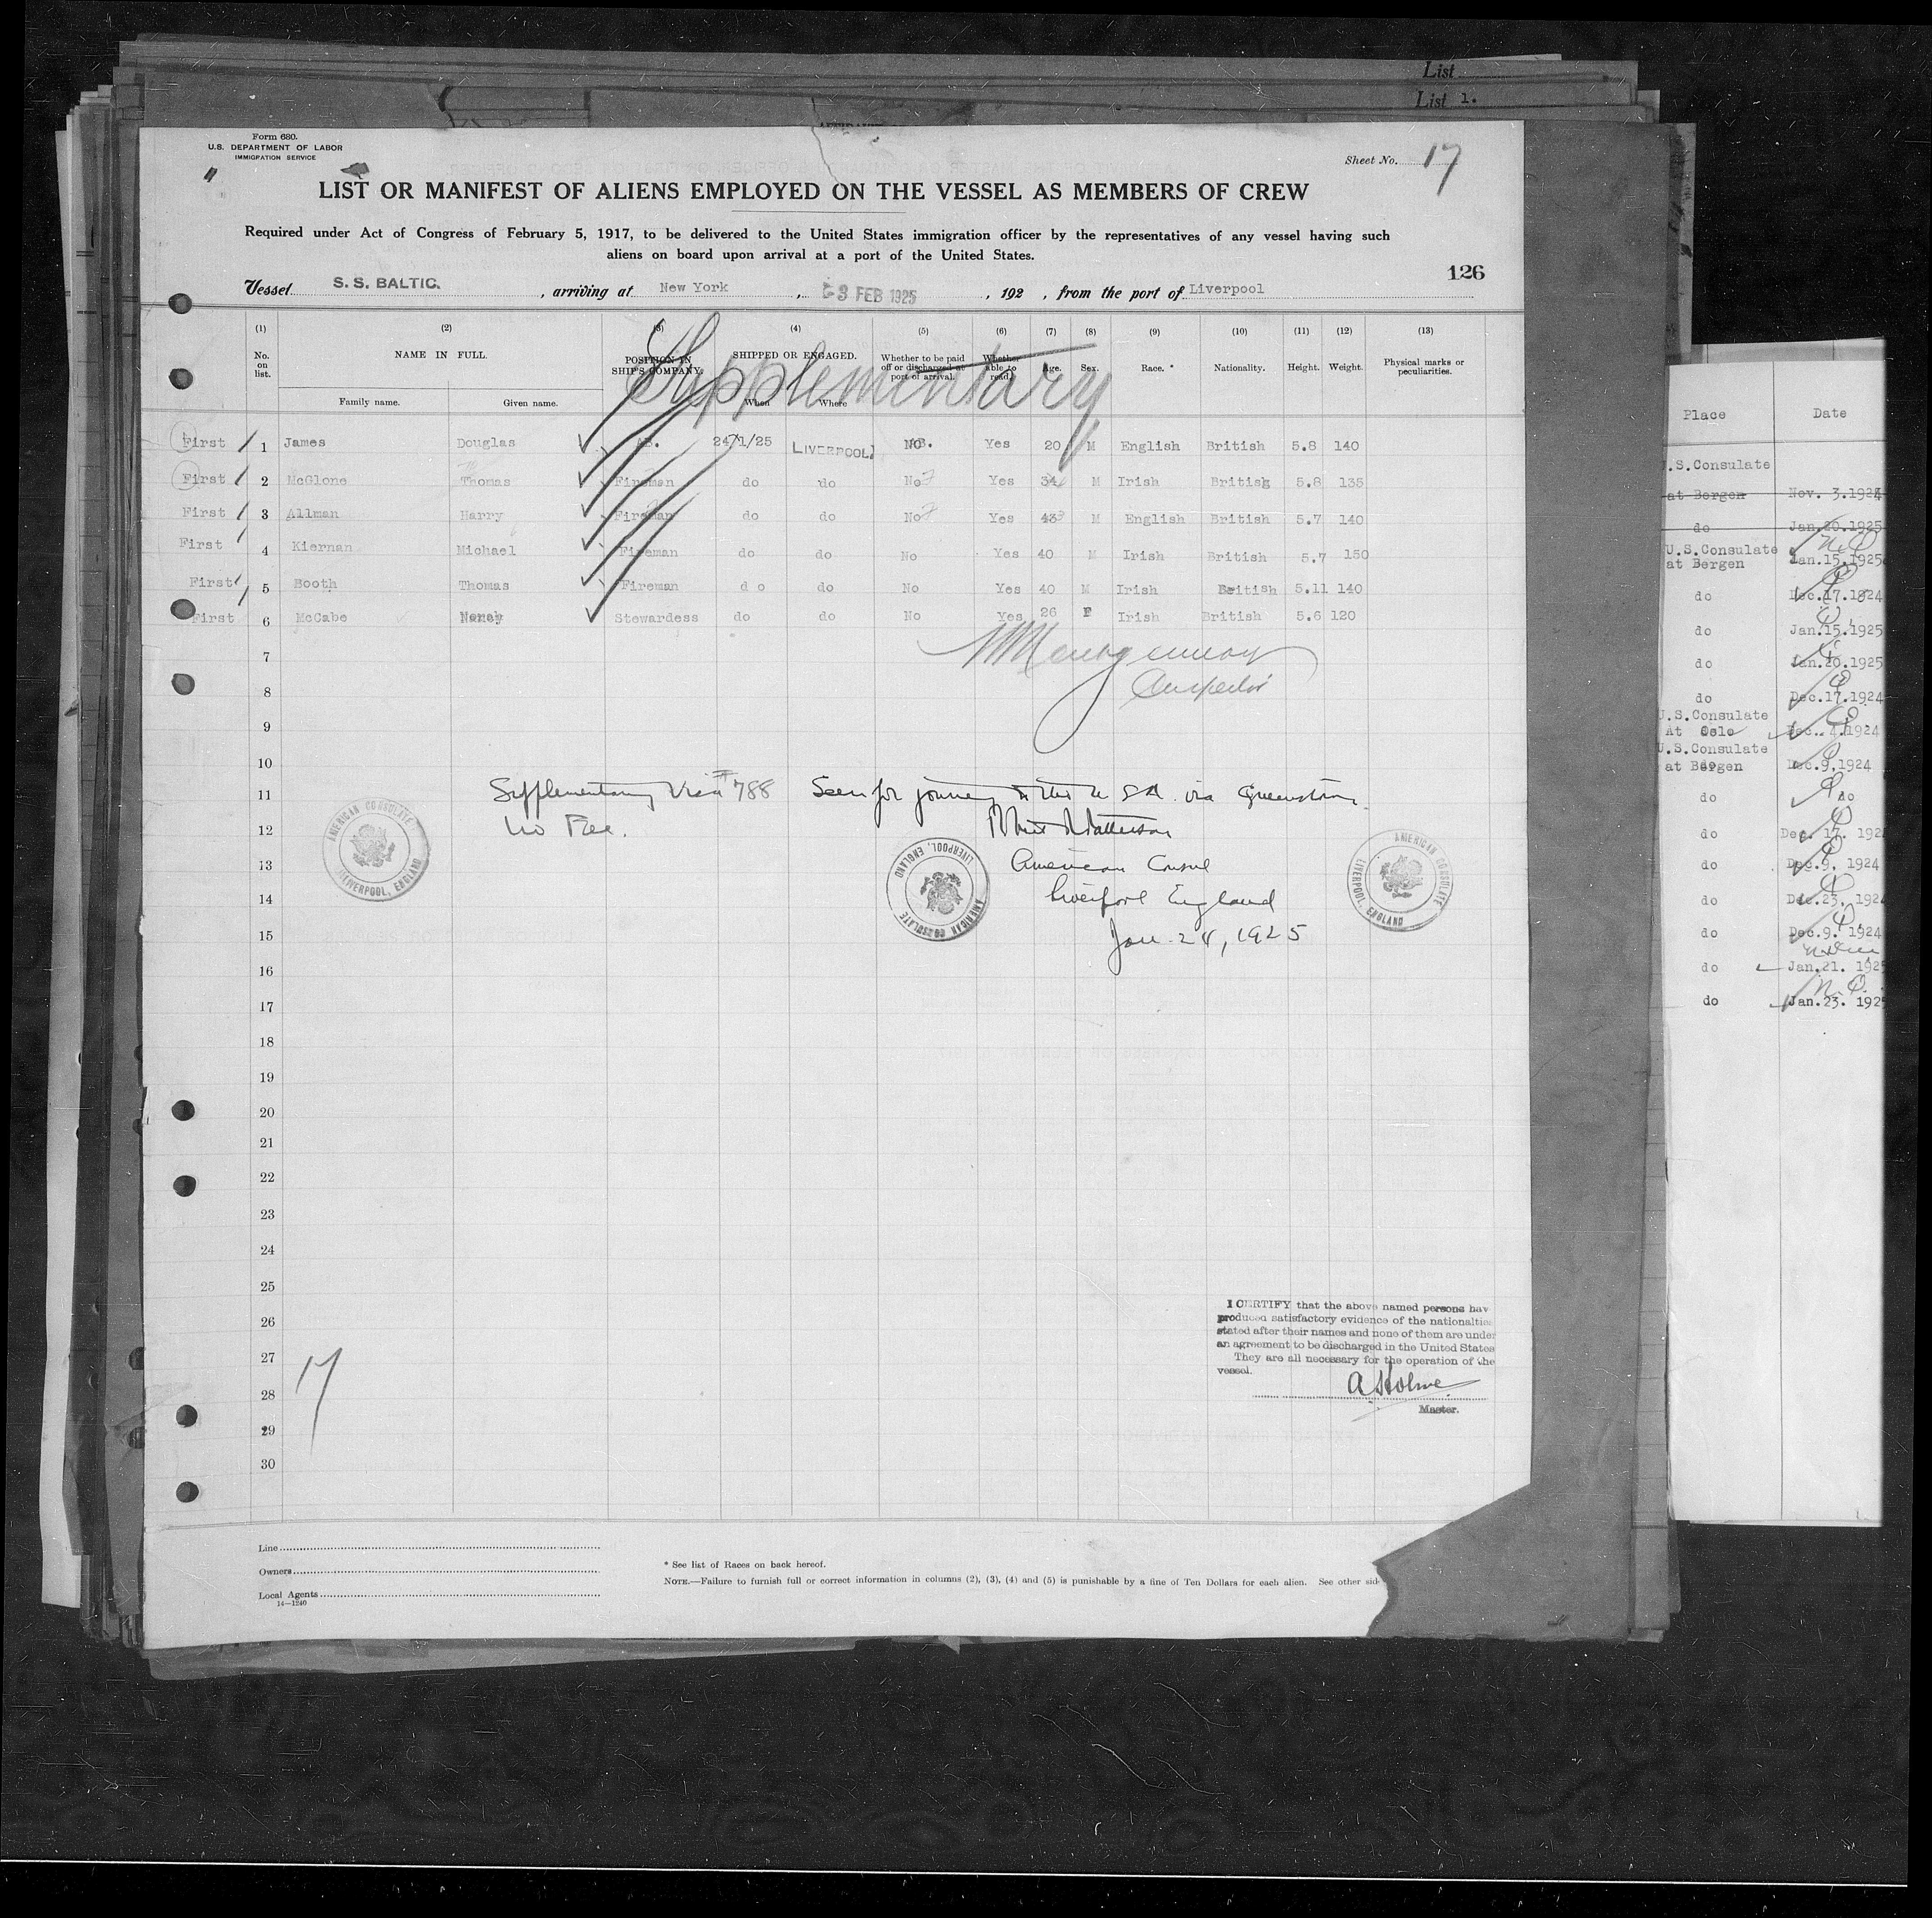 List
List 1.
Form 680.
U.S. DEPARTMENT OF LABOR
IMMIGRATION SERVICE
Sheet No. 17
LIST OR MANIFEST OF ALIENS EMPLOYED ON THE VESSEL AS MEMBERS OF CREW
Required under Act of Congress of February 5, 1917, to be delivered to the United States immigration officer by the representatives of any vessel having such
aliens on board upon arrival at a port of the United States.
126
Vessel S. S. BALTIC. , arriving at New York , 3 FEB 1925 , 192 , from the port of Liverpool
(1) (2) (3) (4) (5) (6) (7) (8) (9) (10) (11) (12) (13)
No. on list. NAME IN FULL. POSITION IN SHIP'S COMPANY. SHIPPED OR ENGAGED. Whether to be paid off or discharged at port of arrival. Whether able to read. Age. Sex. Race. * Nationality. Height. Weight. Physical marks or peculiarities.
Family name. Given name. When Where
Supplementary
First 1 James Douglas AB. 24/1/25 LIVERPOOL No Yes 20 M English British 5.8 140
First 2 McGlone Thomas Fireman do do No Yes 34 M Irish British 5.8 135
First 3 Allman Harry Fireman do do No Yes 43 M English British 5.7 140
First 4 Kiernan Michael Fireman do do No Yes 40 M Irish British 5.7 150
First 5 Booth Thomas Fireman d o do No Yes 40 M Irish British 5.11 140
First 6 McCabe Stewardess do do No Yes 26 F Irish British 5.6 120
7
8
9
10
11 Supplementary Visa # 788 Seen for journey to the U S A. via Queenstown.
12 No Fee. Patterson
13 American Consul
14 Liverpool England
15 Jan. 24, 1925
AMERICAN CONSULATE LIVERPOOL, ENGLAND
AMERICAN CONSULATE LIVERPOOL, ENGLAND
AMERICAN CONSULATE LIVERPOOL, ENGLAND
16
17
18
19
20
21
22
23
24
25
26
27
28
29
30
17
I CERTIFY that the above named persons hav
produced satisfactory evidence of the nationaltie
stated after their names and none of them are under
an agreement to be discharged in the United States
They are all necessary for the operation of the
vessel.
Master.
Line
Owners
Local Agents
14—1240
* See list of Races on back hereof.
NOTE.—Failure to furnish full or correct information in columns (2), (3), (4) and (5) is punishable by a fine of Ten Dollars for each alien. See other sid
Place Date
U.S.Consulate
at Bergen Nov. 3.1924
do Jan.20.1925
U.S.Consulate
at Bergen Jan.15.1925
do Dec.17.1924
do Jan.15.1925
do Jan.20.1925
do Dec.17.1924
U.S.Consulate
At Oslo Dec. 4.1924
U.S.Consulate
at Bergen Dec.9.1924
do do
do Dec. 17. 192
do Dec.9. 1924
do Dec.23. 192
do Dec.9. 1924
do Jan.21. 192
do Jan.23. 192